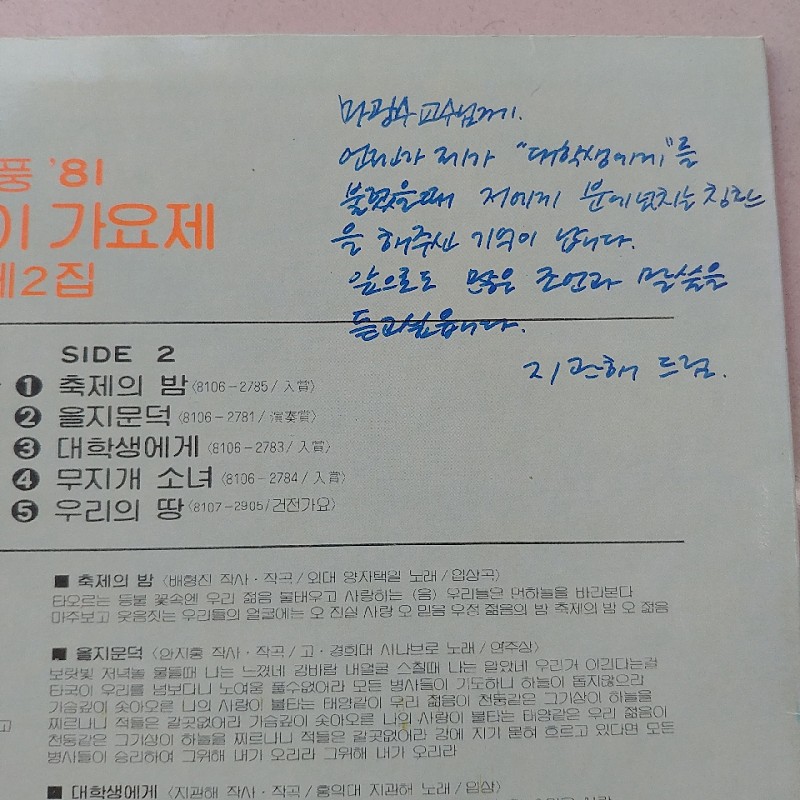 마광수 교수님께.
언젠가 제가 "대학생에게"를
불렀을때 저에게 분에넘치는 칭찬
을 해주신 기억이 납니다.
앞으로도 많은 조언과 말씀을
듣고싶읍니다.
지관해 드림.
풍 '81
이 가요제
제2집
SIDE 2
❶ 축제의 밤〈8106-2785/入賞〉
❷ 을지문덕〈8106-2781/演奏賞〉
❸ 대학생에게〈8106-2783/入賞〉
❹ 무지개 소녀〈8106-2784/入賞〉
❺ 우리의 땅〈8107-2905/건전가요〉
■ 축제의 밤〈배형진 작사·작곡/외대 양자택일 노래/입상곡〉
타오르는 등불 꽃속엔 우리 젊음 불태우고 사랑하는 (음) 우리들은 먼하늘을 바라본다
마주보고 웃음짓는 우리들의 얼굴에는 오 진실 사랑 오 믿음 우정 젊음의 밤 축제의 밤 오 젊음
■ 을지문덕〈안지홍 작사·작곡/고·경희대 시나브로 노래/연주상〉
보랏빛 저녁놀 물들때 나는 느꼈네 강바람 내얼굴 스칠때 나는 알았네 우리가 이긴다는걸
타국이 우리를 넘보다니 노여움 풀수없어라 모든 병사들이 기도하니 하늘이 돕지않으랴
가슴깊이 솟아오른 나의 사랑이 불타는 태양같이 우리 젊음이 천둥같은 그기상이 하늘을
찌르나니 적들은 갈곳없어라 가슴깊이 솟아오른 나의 사랑이 불타는 태양같은 우리 젊음이
천둥같은 그기상이 하늘을 찌르나니 적들은 갈곳없어라 강에 지가 묻혀 흐르고 있다면 모든
병사들이 승리하여 그위해 내가 오리라 그위해 내가 오리라
고
■ 대학생에게〈지관해 작사·작곡/홍익대 지관해 노래/입상〉